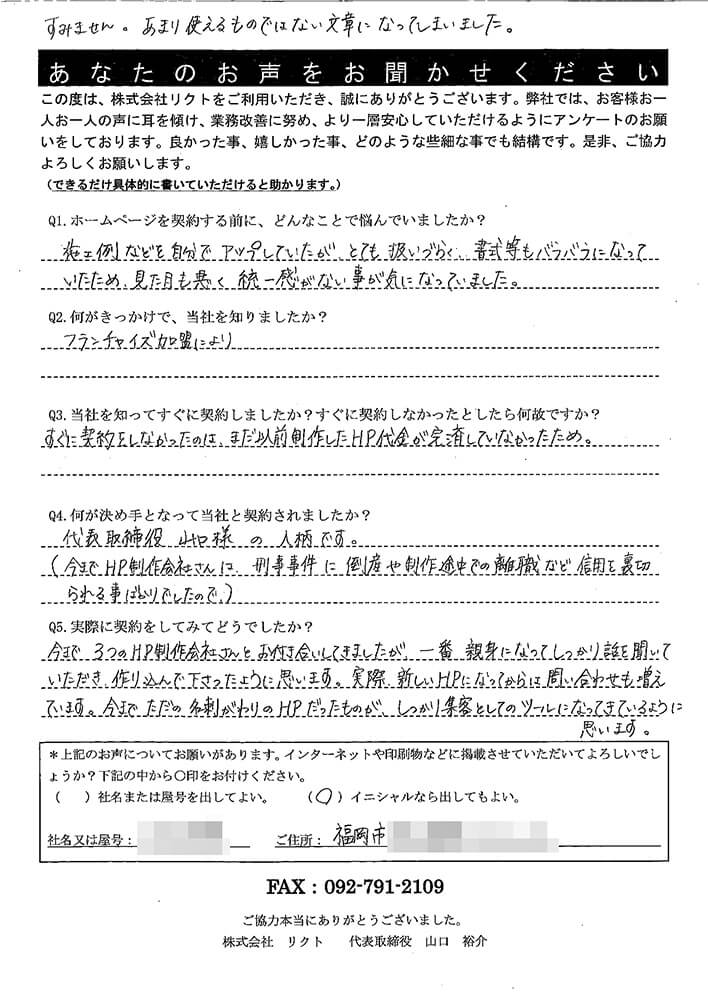 すみません。あまり使えるものではない文章になってしまいました。
あなたのお声をお聞かせください
この度は、株式会社リクトをご利用いただき、誠にありがとうございます。弊社では、お客様お一
人お一人の声に耳を傾け、業務改善に努め、より一層安心していただけるようにアンケートのお願
いをしております。良かった事、嬉しかった事、どのような些細な事でも結構です。是非、ご協力
よろしくお願いします。
(できるだけ具体的に書いていただけると助かります。)
Q1.ホームページを契約する前に、どんなことで悩んでいましたか？
施工例などを自分でアップしていたが、とても扱いづらく、書式等もバラバラになって
いたため、見た目も悪く統一感がない事が気になっていました。
Q2.何がきっかけで、当社を知りましたか？
フランチャイズ加盟により
Q3.当社を知ってすぐに契約しましたか？すぐに契約しなかったとしたら何故ですか？
すぐに契約をしなかったのは、まだ以前制作したHP代金が完済していなかったため。
Q4.何が決め手となって当社と契約されましたか？
代表取締役 山口様 の 人柄です。
(今までHP制作会社さんは、刑事事件に倒産や制作途中での離職など信用を裏切
られる事ばかりでしたので。)
Q5.実際に契約をしてみてどうでしたか？
今まで 3つのHP制作会社さんとお付き合いしてきましたが、一番 親身になってしっかり話を聞いて
いただき、作り込んで下さったように思います。実際、新しいHPになってからは問い合わせも増え
ています。今までただの名刺がわりのHPだったものが、しっかり集客としてのツールになってきているように
思います。
＊上記のお声についてお願いがあります。インターネットや印刷物などに掲載させていただいてよろしいでし
ょうか？下記の中から〇印をお付けください。
(　) 社名または屋号を出してよい。　(〇) イニシャルなら出してもよい。
社名又は屋号：　ご住所：福岡市
FAX：092-791-2109
ご協力本当にありがとうございました。
株式会社 リクト　代表取締役 山口 裕介